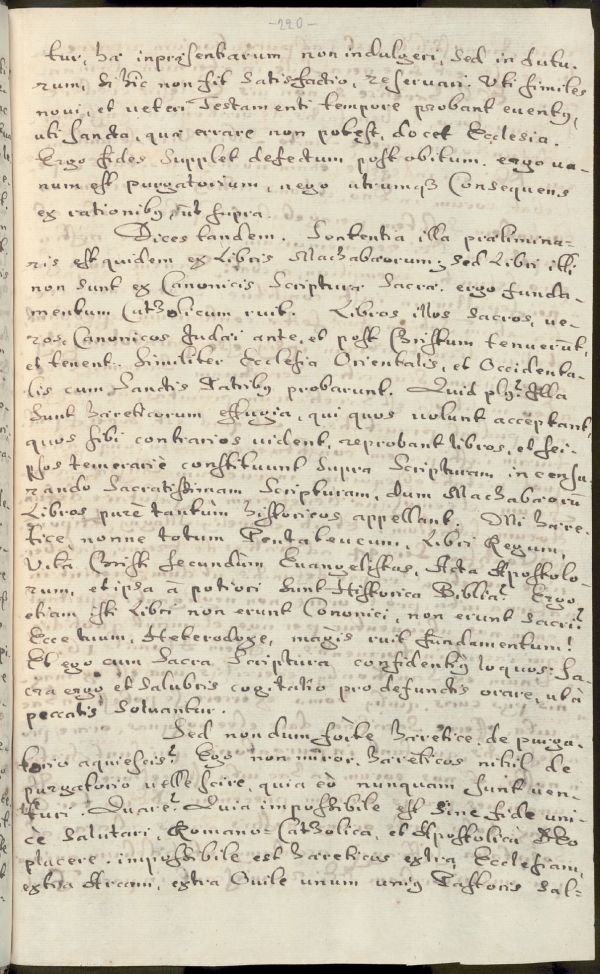 -220-
tur, hæ inpræsentiarum non indulgeri, sed in futu-
rum, si hîc non fit satisfactio, reservari. Uti similes
novi, et veteri Testamenti tempore probant eventq,
uti sancta, quæ errare non potest, docet Ecclesia.
Ergo fides supplet defectum post obitum. ergo va-
num est purgatorium, nego utrumq3 Consequens
ex rationibq, ut supra.
Dices tandem. Sententia illa prælimina-
ris est quidem ex Libris Machabæorum; sed Libri illi
non sunt ex Canonicis Scripturæ Sacræ. ergo funda-
mentum Catholicum ruit. Libros illos sacros, ve-
ros, Canonicos Judæi ante, et post Christum tenuerũt,
et tenent. Similiter Ecclesia Orientalis, et Occidenta-
lis cum Sanctis Patribq probarunt. Quid Illa
sunt hæreticorum effugia, qui quos volunt acceptant,
quos sibi contrarios vident, reprobant libros, et sei-
psos temerariè constituunt supra Scripturam, in censu-
rando Sacratissimam Scripturam, dum Machabæorũ
Libros purè tantùm historicos appellant. Mi hære-
tice, nonne totum Pentateucum, Libri Regum,
Vita Christi secundùm Euangelistas, Acta Apostolo-
rum, et ipsa à potiori sunt Historica Biblia? Ergo
etiam isti Libri non erunt Canonici, non erunt sacri?
Ecce tuum, Heterodoxe, magis ruit fundamentum!
Et ego cum Sacra Scriptura confidentiq loquor: Sa-
cra ergo et salubris cogitatio pro defunctis orare, ut à
peccatis solvantur.
Sed nondum forte hæretice de purga-
torio aquiescis? Ego non miror, hæreticos nihil de
purgatorio velle scire, quia eò nunquam sunt ven-
turi. Quare? Quia impossibile est sine fide uni-
cè salutari, Romano-Catholica, et Apostolicâ DEo
placere. impossibile est hæreticos extra Ecclesiam,
extra Arcam, extra Ovile unum uniq Pastoris sal-